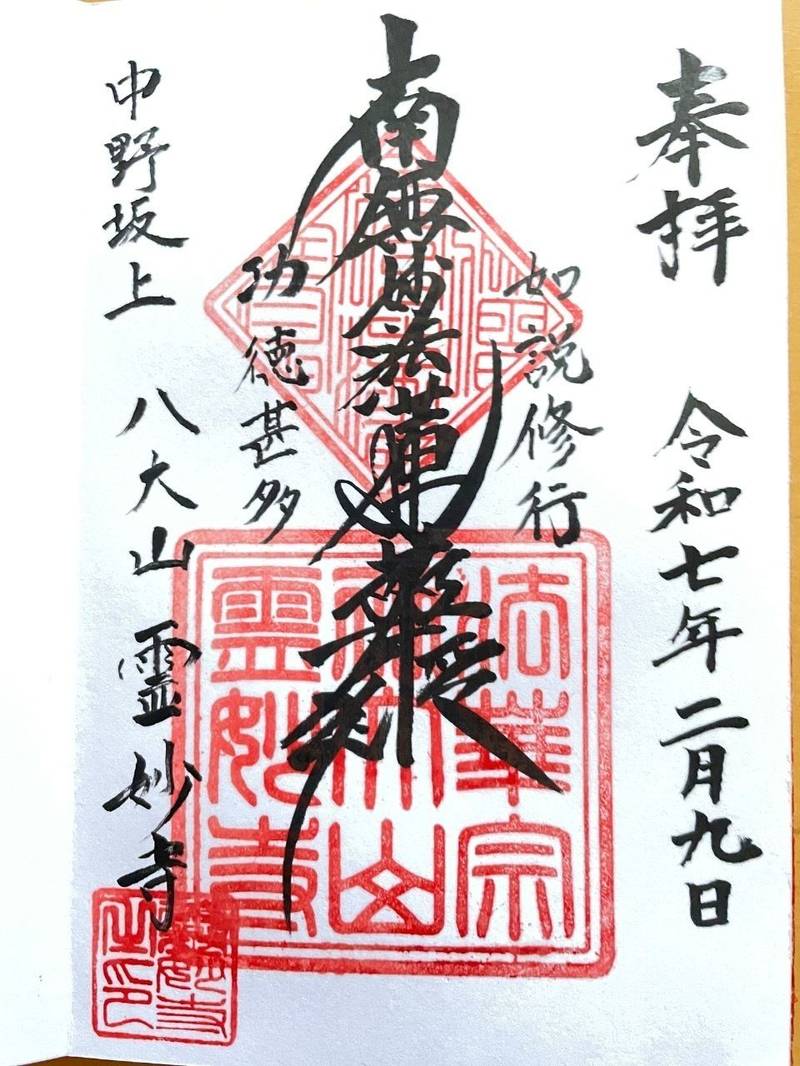 奉拝
令和七年二月九日
如説修行
南無妙法蓮華経
功徳甚多
中野坂上
八大山 霊妙寺
法華宗
八大山
霊妙寺
霊妙寺
之印